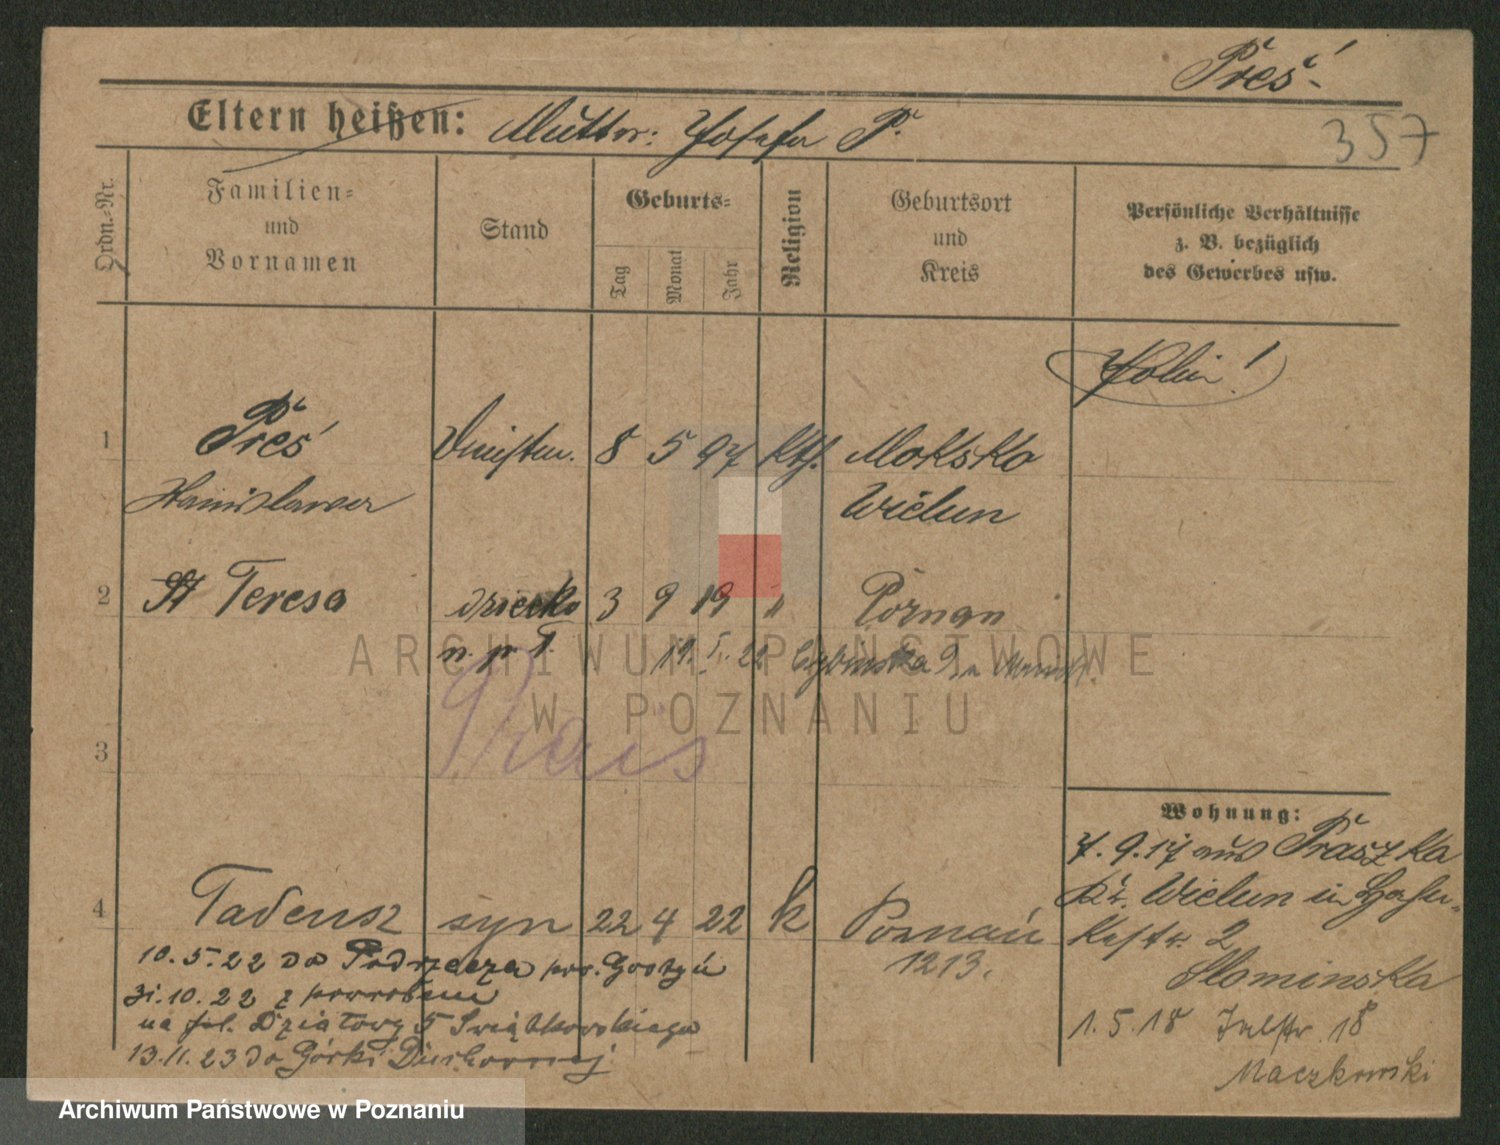 Preś
Eltern heißen: Mutter: Josefa P.
357
Ordn.-Nr.
Familien-
und
Vornamen
Stand
Geburts-
Tag
Monat
Jahr
Religion
Geburtsort
und
Kreis
Persönliche Verhältnisse
z. B. bezüglich
des Gewerbes usw.
Polin!
1 Preś 8 5 97 kth. Moksko
Stanisława Wielun
2 Teresa dziecko 3 9 19 " Poznan
n. p. T. 19. I. 22
Prais
3
Wohnung:
7. 9. 17 aus Praszka
Kr. Wielun in
2
Slominska
1. 5. 18 18
Maczkowski
4 Tadeusz syn 22 4 22 k Poznań
1213.
10. 5. 22 do Podrzecza pow. Gostyń
31. 10. 22 z powrotem
na Działowy 5 Swiątkowskiego
13. 11. 23 do Górki Duchownej
ARCHIWUM PAŃSTWOWE
W POZNANIU
Archiwum Państwowe w Poznaniu